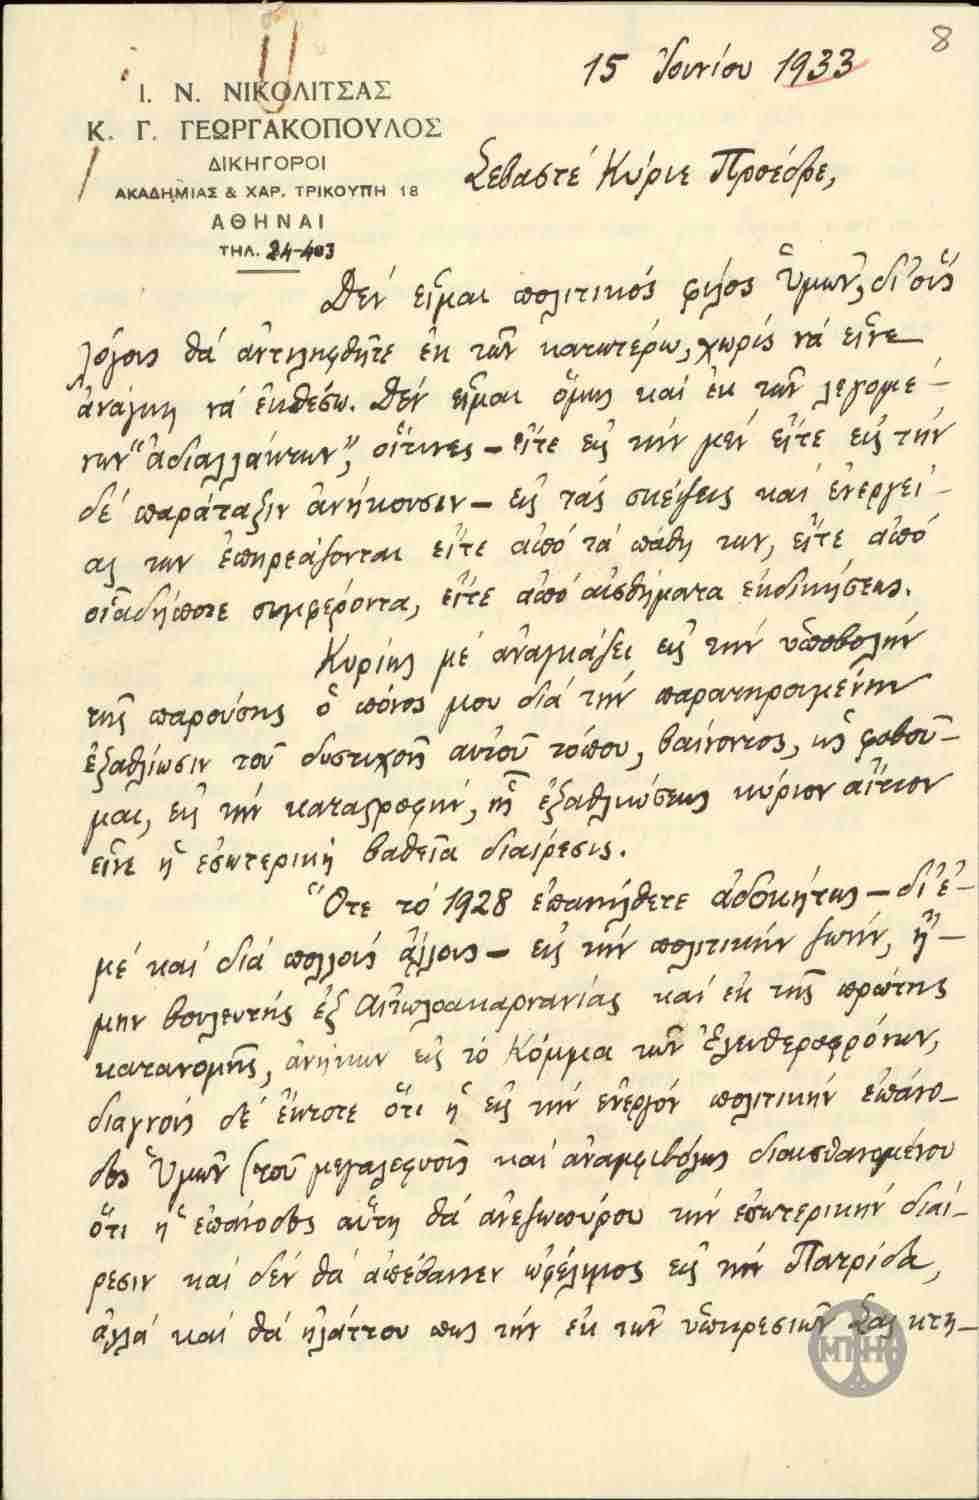 8
15 Ἰουνίου 1933
Ι. Ν. ΝΙΚΟΛΙΤΣΑΣ
Κ. Γ. ΓΕΩΡΓΑΚΟΠΟΥΛΟΣ
ΔΙΚΗΓΟΡΟΙ
ΑΚΑΔΗΜΙΑΣ & ΧΑΡ. ΤΡΙΚΟΥΠΗ 18
ΑΘΗΝΑΙ
ΤΗΛ. 24-403
Σεβαστέ Κύριε Πρόεδρε,
Δέν εἶμαι πολιτικός φίλος Ὑμῶν, δι' οὕς
λόγους θά ἀντιληφθῆτε ἐκ τῶν κατωτέρω, χωρίς νά εἶνε
ἀνάγκη νά ἐκθέσω. Δέν εἶμαι ὅμως καί ἐκ τῶν λεγομέ-
νων "ἀδιαλλάκτων", οἵτινες – εἴτε εἰς τήν μέν εἴτε εἰς τήν
δέ παράταξιν ἀνήκουσιν – εἰς τάς σκέψεις καί ἐνεργεί-
ας των ἐπηρεάζονται εἴτε ἀπό τά πάθη των, εἴτε ἀπό
οἱαδήποτε συμφέροντα, εἴτε ἀπό αἰσθήματα ἐκδικήσεως.
Κυρίως μέ ἀναγκάζει εἰς τήν ὑποβολήν
τῆς παρούσης ὁ πόνος μου διά τήν παρατηρουμένην
ἐξαθλίωσιν τοῦ δυστυχοῦς αὐτοῦ τόπου, βαίνοντος, ὡς φοβοῦ-
μαι, εἰς τήν καταστροφήν, ἧς ἐξαθλιώσεως κύριον αἴτιον
εἶνε ἡ ἐσωτερική βαθεῖα διαίρεσις.
Ὅτε τό 1928 ἐπανήλθετε ἀδοκήτως – δι' ἐ-
μέ καί διά πολλούς ἄλλους – εἰς τήν πολιτικήν ζωήν, ἤ-
μην βουλευτής ἐξ Αἰτωλοακαρνανίας καί ἐκ τῆς πρώτης
κατανομῆς, ἀνήκων εἰς τό Κόμμα τῶν Ἐλευθεροφρόνων,
διαγνούς δέ ἔκτοτε ὅτι ἡ εἰς τήν ἐνεργόν πολιτικήν ἐπάνο-
δος Ὑμῶν (τοῦ μεγαλοφυοῦς καί ἀναμφιβόλως διαισθανομένου
ὅτι ἡ ἐπάνοδος αὕτη θά ἀνεζωπύρου τήν ἐσωτερικήν διαί-
ρεσιν καί δέν θά ἀπέβαινεν ὠφέλιμος εἰς τήν Πατρίδα,
ἀλλά καί θά ἠλάττου πως τήν ἐκ τῶν ὑπηρεσιῶν Σας κτη-
ΜΠΗ